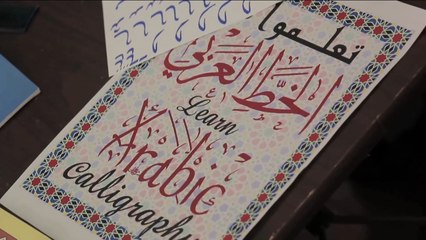 تعلموا
الخط العربي
Learn
Arabic
Calligraphy